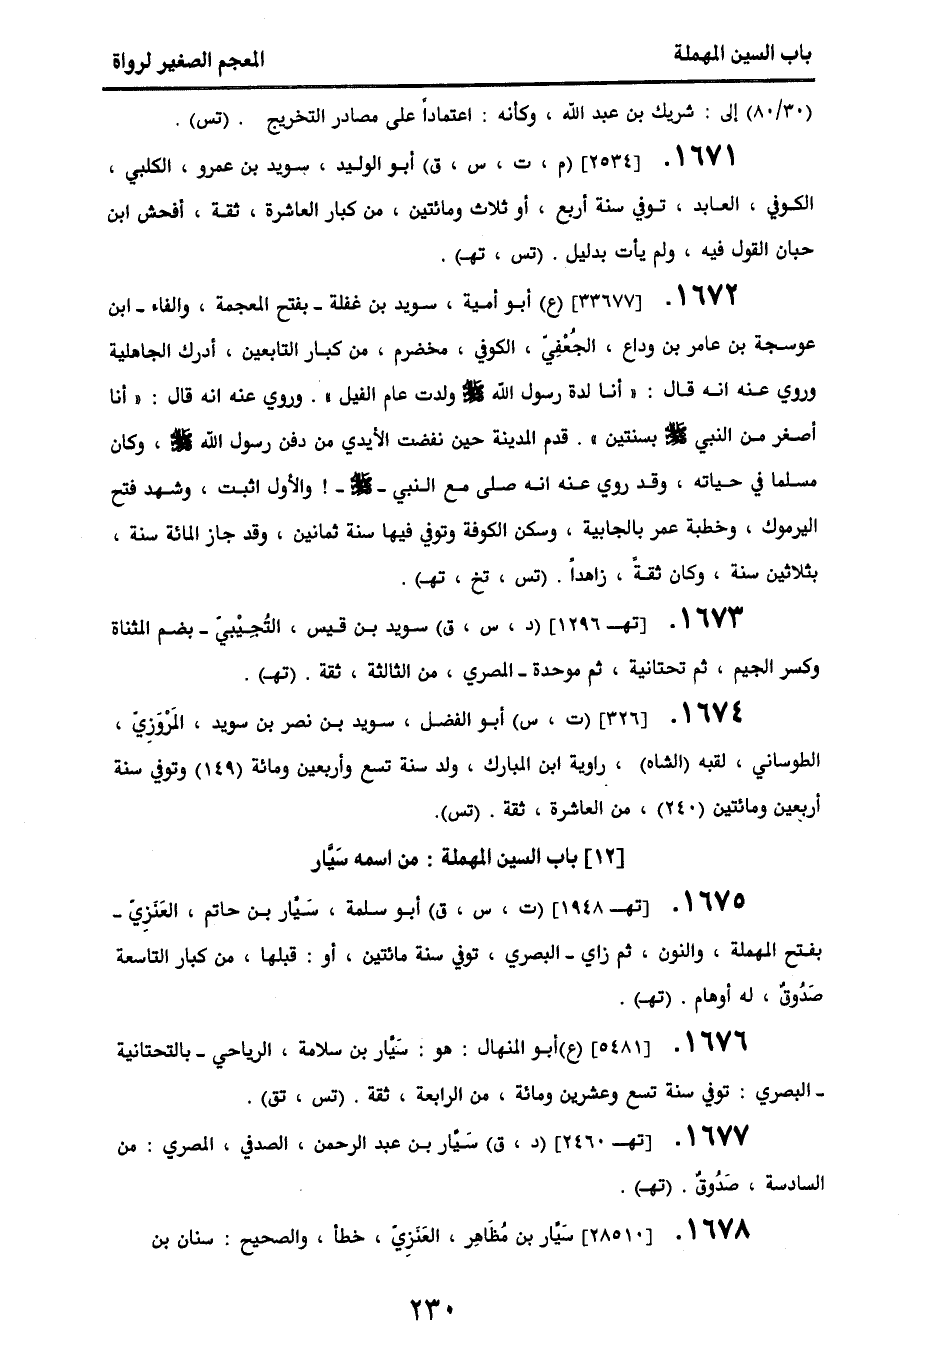 باب السين المهملة
المعجم الصغير لرواة
(٨٠/٣٠) إلى : شريك بن عبد الله ، وكأنه : اعتماداً على مصادر التخريج . (تس) .
١٦٧١. [٢٥٣٤] (م ، ت ، س ، ق) أبو الوليد ، سويد بن عمرو ، الكلبي ،
الكوفي ، العابد ، توفي سنة أربع ، أو ثلاث ومائتين ، من كبار العاشرة ، ثقة ، أفحش ابن
حبان القول فيه ، ولم يأت بدليل . (تس ، تهـ) .
١٦٧٢. [٣٣٦٧٧] (ع) أبو أمية ، سويد بن غفلة ـ بفتح المعجمة ، والفاء ـ ابن
عوسجة بن عامر بن وداع ، الجُعْفِيّ ، الكوفي ، مخضرم ، من كبار التابعين ، أدرك الجاهلية
وروي عنه انه قال : « أنا لدة رسول الله ﷺ ولدت عام الفيل » . وروي عنه انه قال : « أنا
أصغر من النبي ﷺ بسنتين » . قدم المدينة حين نفضت الأيدي من دفن رسول الله ﷺ ، وكان
مسلما في حياته ، وقد روي عنه انه صلى مع النبي ـ ﷺ ـ ! والأول اثبت ، وشهد فتح
اليرموك ، وخطبة عمر بالجابية ، وسكن الكوفة وتوفي فيها سنة ثمانين ، وقد جاز المائة سنة ،
بثلاثين سنة ، وكان ثقةً ، زاهداً . (تس ، تخ ، تهـ) .
١٦٧٣. [تهـ ١٢٩٦] (د ، س ، ق) سويد بن قيس ، التُجِيْبيّ ـ بضم المثناة
وكسر الجيم ، ثم تحتانية ، ثم موحدة ـ المصري ، من الثالثة ، ثقة . (تهـ) .
١٦٧٤. [٣٢٦] (ت ، س) أبو الفضل ، سويد بن نصر بن سويد ، المَرْوَزِيّ ،
الطوساني ، لقبه (الشاه) ، راوية ابن المبارك ، ولد سنة تسع وأربعين ومائة (١٤٩) وتوفي سنة
أربعين ومائتين (٢٤٠) ، من العاشرة ، ثقة . (تس).
[١٢] باب السين المهملة : من اسمه سَيَّار
١٦٧٥. [تهـ ١٩٤٨] (ت ، س ، ق) أبو سلمة ، سَيَّار بن حاتم ، العَنَزِيّ ـ
بفتح المهملة ، والنون ، ثم زاي ـ البصري ، توفي سنة مائتين ، أو : قبلها ، من كبار التاسعة
صَدُوقٌ ، له أوهام . (تهـ) .
١٦٧٦. [٥٤٨١] (ع)أبو المنهال : هو : سَيَّار بن سلامة ، الرياحي ـ بالتحتانية
ـ البصري : توفي سنة تسع وعشرين ومائة ، من الرابعة ، ثقة . (تس ، تق) .
١٦٧٧. [تهـ ٢٤٦٠] (د ، ق) سَيَّار بن عبد الرحمن ، الصدفي ، المصري : من
السادسة ، صَدُوقٌ . (تهـ) .
١٦٧٨. [٢٨٥١٠] سَيَّار بن مُظَاهِر ، العَنَزِيّ ، خطأ ، والصحيح : سنان بن
٢٣٠